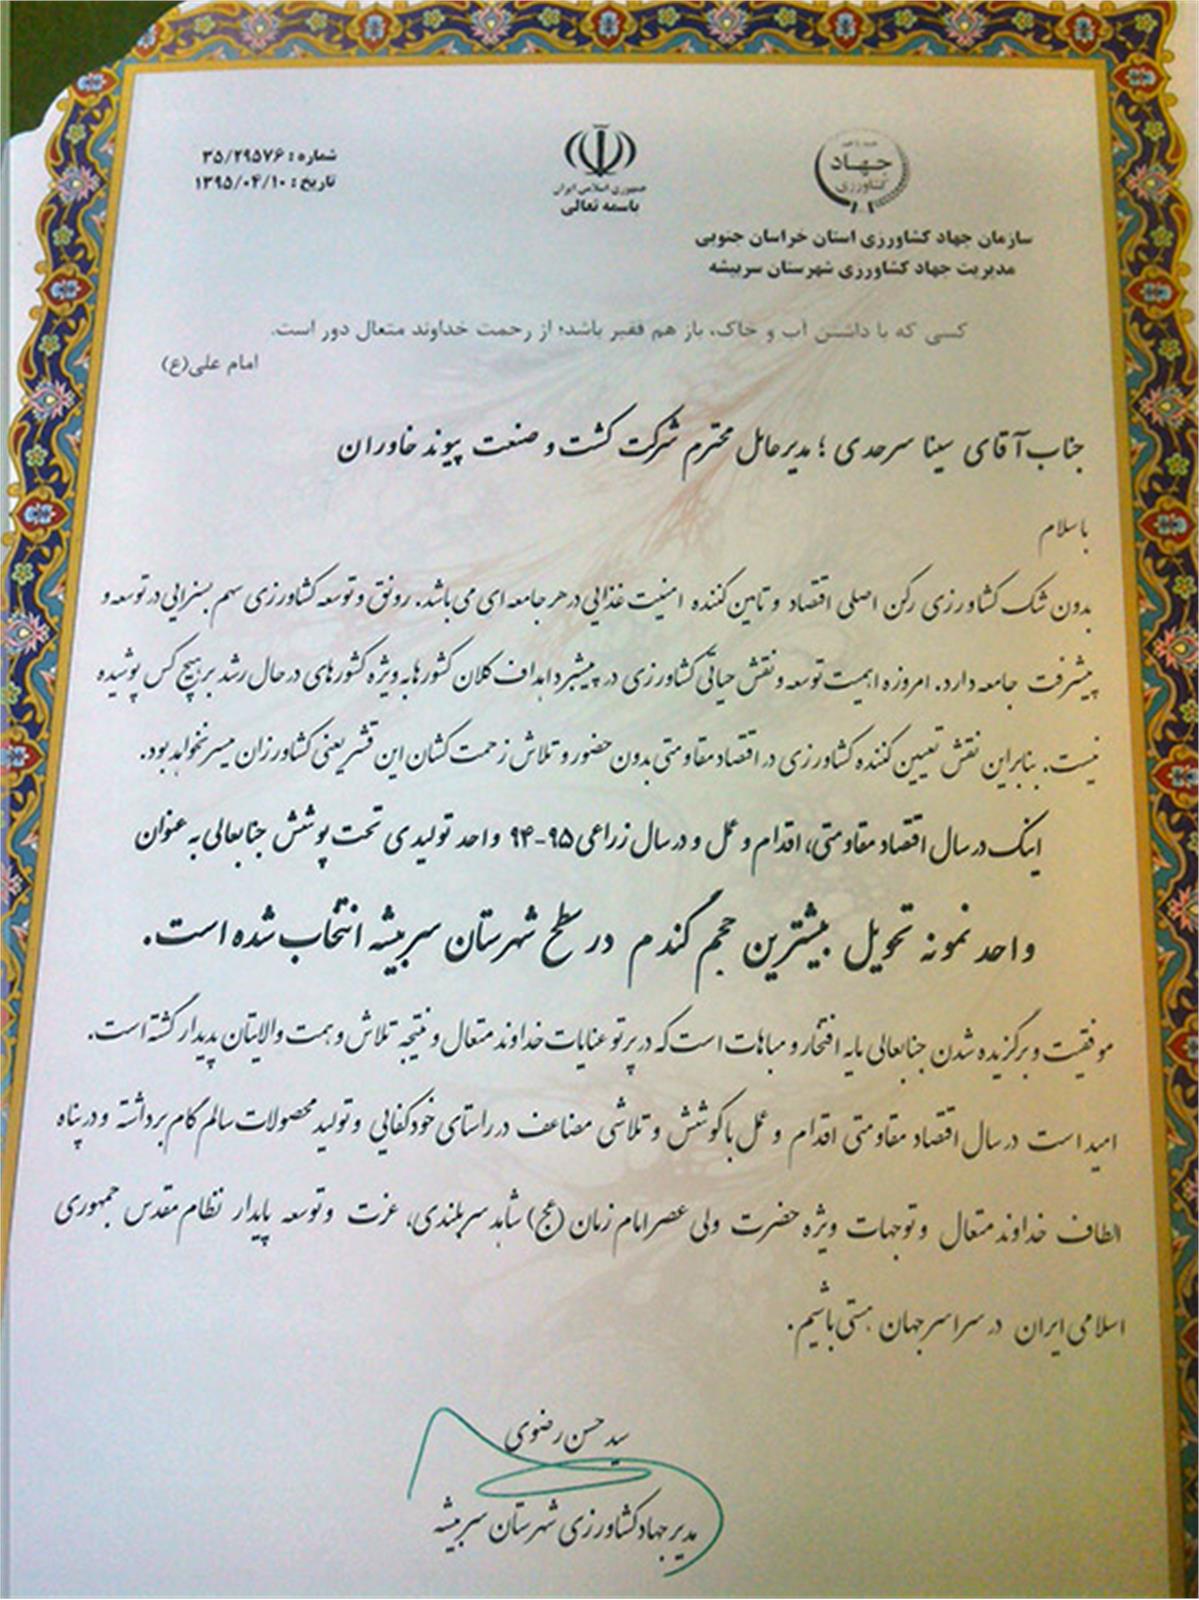 شماره : ۳۵/۲۹۵۷۶
تاریخ : ۱۳۹۵/۰۴/۱۰
جمهوری اسلامی ایران
باسمه تعالی
جهاد
کشاورزی
سازمان جهاد کشاورزی استان خراسان جنوبی
مدیریت جهاد کشاورزی شهرستان سربیشه
کسی که با داشتن آب و خاک، باز هم فقیر باشد؛ از رحمت خداوند متعال دور است.
امام علی(ع)
جناب آقای سینا سرحدی ؛ مدیرعامل محترم شرکت کشت و صنعت پیوند خاوران
با سلام
بدون شک کشاورزی رکن اصلی اقتصاد و تامین کننده امنیت غذایی در هر جامعه ای می باشد. رونق و توسعه کشاورزی سهم بسزایی در توسعه و
پیشرفت جامعه دارد. امروزه اهمیت توسعه و نقش حیاتی کشاورزی در پیشبرد اهداف کلان کشورها به ویژه کشورهای در حال رشد بر هیچ کس پوشیده
نیست. بنابراین نقش تعیین کننده کشاورزی در اقتصاد مقاومتی بدون حضور و تلاش زحمت کشان این قشر یعنی کشاورزان میسر نخواهد بود.
اینک در سال اقتصاد مقاومتی، اقدام و عمل و در سال زراعی ۹۵-۹۴ واحد تولیدی تحت پوشش جنابعالی به عنوان
واحد نمونه تحویل بیشترین حجم گندم در سطح شهرستان سربیشه انتخاب شده است.
موفقیت و برگزیده شدن جنابعالی مایه افتخار و مباهات است که در پرتو عنایات خداوند متعال و نتیجه تلاش و همت والایتان پدیدار گشته است.
امید است در سال اقتصاد مقاومتی اقدام و عمل با کوشش و تلاشی مضاعف در راستای خودکفایی و تولید محصولات سالم گام برداشته و در پناه
الطاف خداوند متعال و توجهات ویژه حضرت ولی عصر امام زمان (عج) شاهد سربلندی، عزت و توسعه پایدار نظام مقدس جمهوری
اسلامی ایران در سراسر جهان هستی باشیم.
سید حسن رضوی
مدیر جهاد کشاورزی شهرستان سربیشه